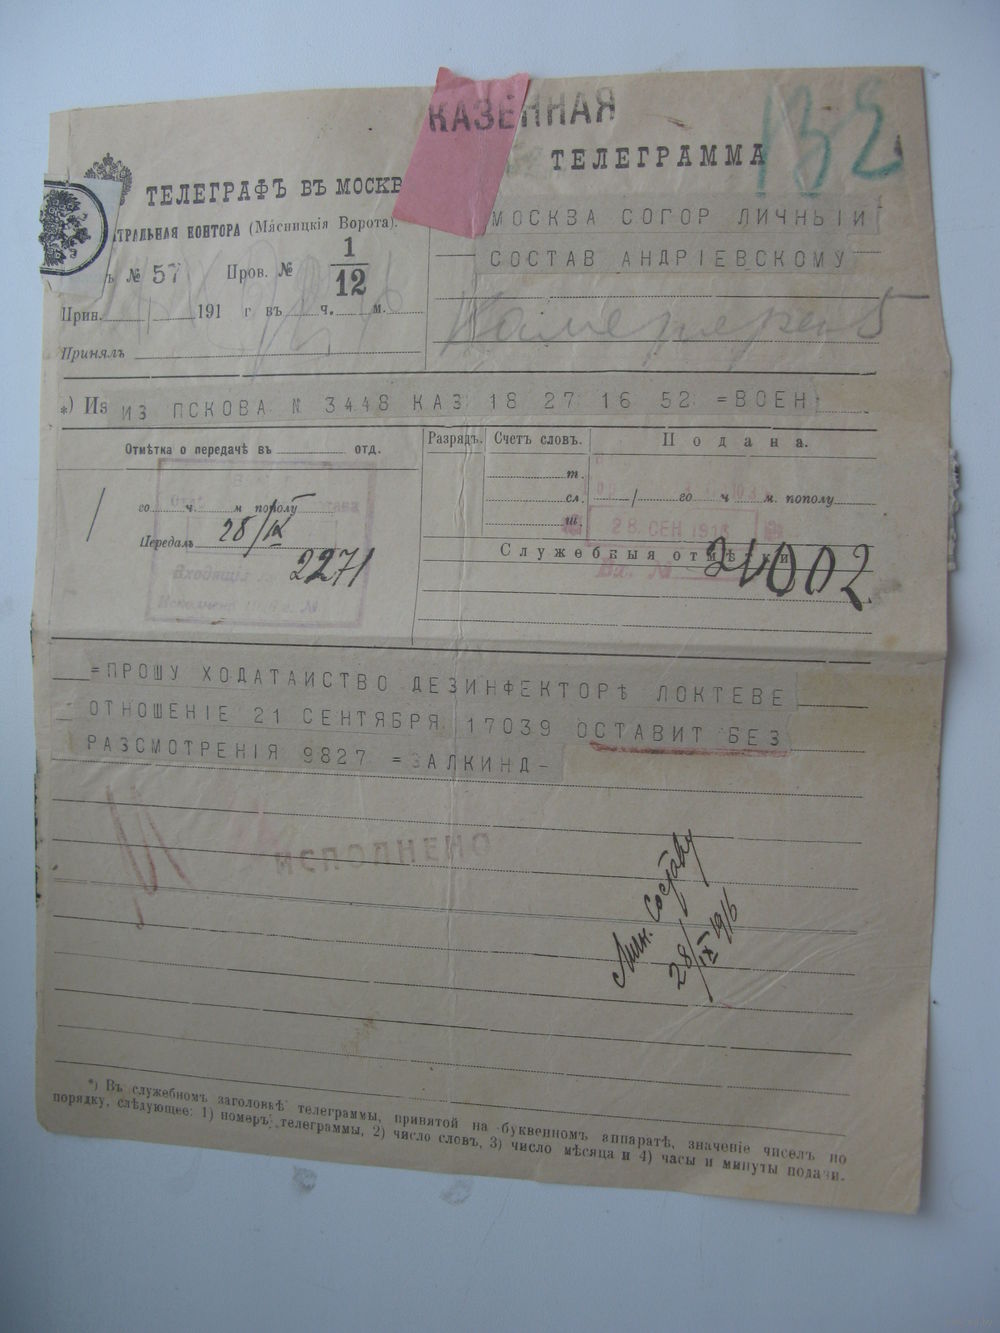 КАЗЕННАЯ
132
ТЕЛЕГРАММА
ТЕЛЕГРАФЪ ВЪ МОСКВ
ТРАЛЬНАЯ КОНТОРА (Мясницкія Ворота).
МОСКВА СОГОР ЛИЧНЫЙ
СОСТАВ АНДРІЕВСКОМУ
Ъ № 57 Пров. № 1/12
Прин. 191 г въ ч. м.
Принялъ
*) Из ИЗ ПСКОВА N 3448 КАЗ 18 27 16 52 =ВОЕН
Отмѣтка о передачѣ въ отд.
Разрядъ. Счетъ словъ. Подана.
т.
го ч. м пополу
сл. / го ч м. пополу
28/IX
ш. 28. СЕН 1916
Передалъ
Служебныя отмѣтки
2271
Входящій
Вх. №
=ПРОШУ ХОДАТАИСТВО ДЕЗИНФЕКТОРѢ ЛОКТЕВЕ
ОТНОШЕНІЕ 21 СЕНТЯБРЯ 17039 ОСТАВИТ БЕЗ
РАЗСМОТРЕНІЯ 9827 =ЗАЛКИНД-
ИСПОЛНЕНО
Личн. составу
28/IX 1916
*) Въ служебномъ заголовкѣ телеграммы, принятой на буквенномъ аппаратѣ, значеніе чиселъ по
порядку, слѣдующее: 1) номеръ телеграммы, 2) число словъ, 3) число мѣсяца и 4) часы и минуты подачи.